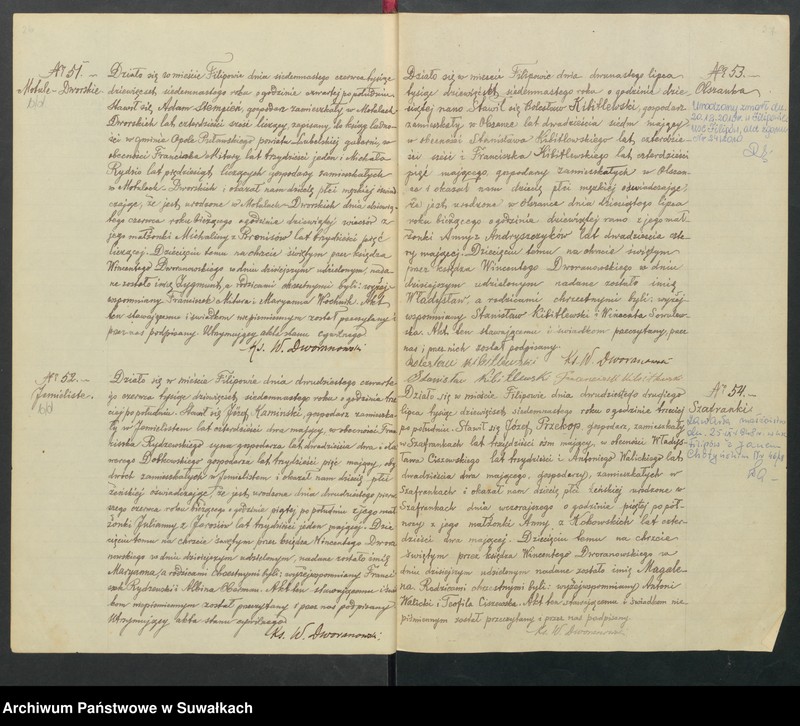 № 51.
Motule-Dworskie
Działo się w mieście Filipowie dnia siedemnastego czerwca tysiąc
dziewięćset siedemnastego roku o godzinie czwartej po południu.
Stawił się, Adam gospodarz zamieszkały w Motulach
Dworskich lat czterdzieści sześć liczący, zapisany do ksiąg ludno-
ści w gminie Opole powiatu Lubelskiej gubernii, w
obecności Franciszka Mitury lat trzydzieści jeden i Michała
Rydzia lat liczących gospodarzy zamieszkałych
w Motulach-Dworskich i okazał nam dziecię płci męskiej oświad-
czając, że jest, urodzone w Motulach-Dworskich dnia dziewią-
tego czerwca roku bieżącego o godzinie dziewiątej wieczór z
jego małżonki Michaliny z Bronisów lat trzydzieści pięć
liczącej. Dziecięciu temu na chrzcie świętym przez księdza
Wincentego Dworanowskiego w dniu dzisiejszym udzielonym, nada-
ne zostało imię Zygmunt, a rodzicami chrzestnymi byli: wyżej-
wspomniany Franciszek Mitura i Maryanna Woźniak. Akt
ten stawającemu i świadkom niepiśmiennym został przeczytany i
przez nas podpisany. Utrzymujący akta stanu cywilnego
Ks. W. Dworanowski
№ 52.
Jemieliste.
Działo się w mieście Filipowie dnia dwudziestego czwarte-
go czerwca tysiąc dziewięćset, siedemnastego roku o godzinie trze-
ciej po południu. Stawił się Józef Kamiński, gospodarz zamieszka-
ły w Jemielistem lat czterdzieści dwa mający, w obecności Fran-
ciszka Rydzewskiego syna gospodarza lat dwadzieścia dwa i
gospodarza lat trzydzieści pięć mający, oby-
dwóch zamieszkałych w Jemielistem i okazał nam dziecię płci
żeńskiej oświadczając, że jest, urodzone dnia dwudziestego pierw-
szego czerwca roku bieżącego o godzinie piątej po południu z jego mał-
żonki Julianny z Jarosiów lat trzydzieści jeden mającej. Dzie-
cięciu temu na chrzcie świętym przez księdza Wincentego Dwora-
nowskiego w dniu dzisiejszym udzielonym, nadane zostało imię
Maryanna, a rodzicami chrzestnymi byli: wyżejwspomniany Franci-
szek Rydzewski i Albina Akt ten stawającemu i świad-
kom niepiśmiennym został przeczytany i przez nas podpisany.
Utrzymujący akta stanu cywilnego
Ks. W. Dworanowski.
Działo się w mieście Filipowie dnia dwunastego lipca
tysiąc dziewięćset, siedemnastego roku o godzinie dzie-
siątej rano. Stawił się Bolesław Kibitlewski, gospodarz
zamieszkały w Olszance lat dwadzieścia siedm mający
w obecności Stanisława Kibitlewskiego lat, czterdzie-
ści sześć i Franciszka Kibitlewskiego lat, czterdzieści
pięć mającego, gospodarzy zamieszkałych w Olszan-
ce i okazał nam dziecię płci męskiej oświadczając:
że jest, urodzone w Olszance dnia dziewiątego lipca
roku bieżącego o godzinie dziewiątej rano z jego mał-
żonki Anny z Andryszczyków lat dwadzieścia czte-
ry mającej. Dziecięciu temu na chrzcie świętym
przez księdza Wincentego Dworanowskiego w dniu
dzisiejszym udzielonym, nadane zostało imię
Władysław, a rodzicami chrzestnymi byli: wyżej-
wspomniany Stanisław Kibitlewski i Wincenta
Akt ten stawającemu i świadkom przeczytany, przez
nas i przez nich został podpisany.
Bolesław Kibitlewski Ks. W. Dworanowski
Stanisław Kibitlewski Franciszek Kibitlewski
№ 53.
Olszanka
Działo się w mieście Filipowie dnia dwudziestego drugiego
lipca tysiąc dziewięćset, siedemnastego roku o godzinie trzeciej
po południu. Stawił się Józef Przekop, gospodarz, zamieszkały
w Szafrankach lat trzydzieści ośm mający, w obecności Władysła-
wa Ciszewskiego lat trzydzieści i Antoniego Walickiego lat
dwadzieścia dwa mającego, gospodarzy, zamieszkałych w
Szafrankach i okazał nam dziecię płci żeńskiej urodzone w
Szafrankach dnia wczorajszego o godzinie piątej po połu-
dniu z jego małżonki Anny z lat czter-
dzieści dwa mającej. Dziecięciu temu na chrzcie
świętym przez księdza Wincentego Dworanowskiego w
dniu dzisiejszym udzielonym nadane zostało imię Magale-
na. Rodzicami chrzestnymi byli: wyżejwspomniany Antoni
Walicki i Teofila Ciszewska. Akt ten stawającemu i świadkom nie-
piśmiennym został przeczytany i przez nas podpisany.
Ks. W. Dworanowski
№ 54.
Szafranki
Archiwum Państwowe w Suwałkach